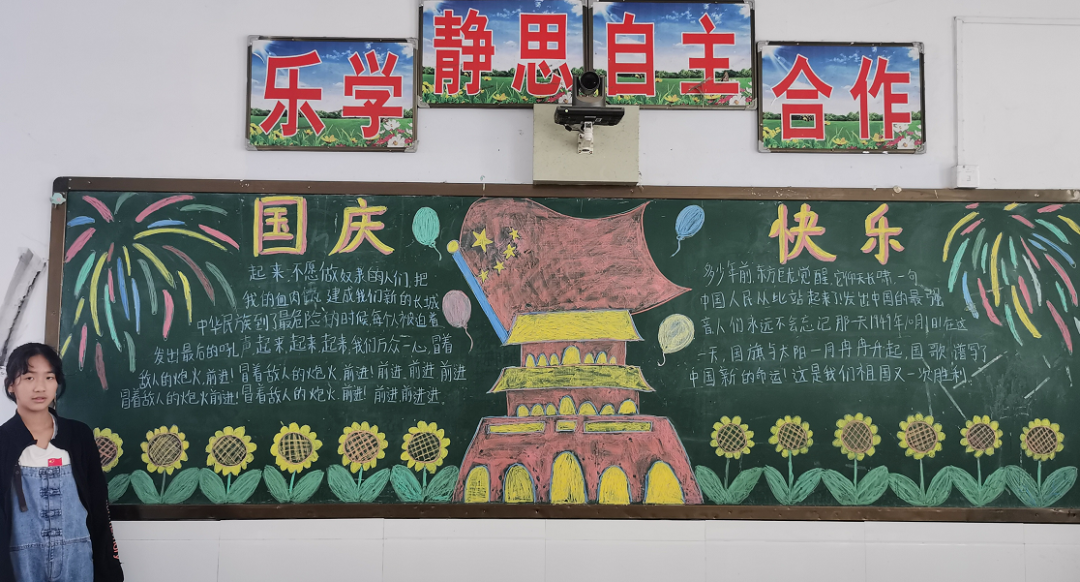 乐学
静思
自主
合作
国庆
快乐
起来,不愿做奴隶的人们,把
我们的血肉 建成我们新的长城
中华民族到了最危险的时候每个人被迫着
发出最后的吼声起来,起来,起来,我们万众一心,冒着
敌人的炮火,前进!冒着敌人的炮火前进!前进,前进前进
冒着敌人的炮火前进!冒着敌人的炮火前进!前进,前进进,
多少年前,东方巨龙觉醒,它仰天长啸一句
中国人民从此站起来了!发出中国的最强
音人们永远不会忘记那一天1949年10月1日在这
一天,国旗与太阳一月冉冉升起,国歌谱写了
中国新的命运!这是我们祖国又一次胜利